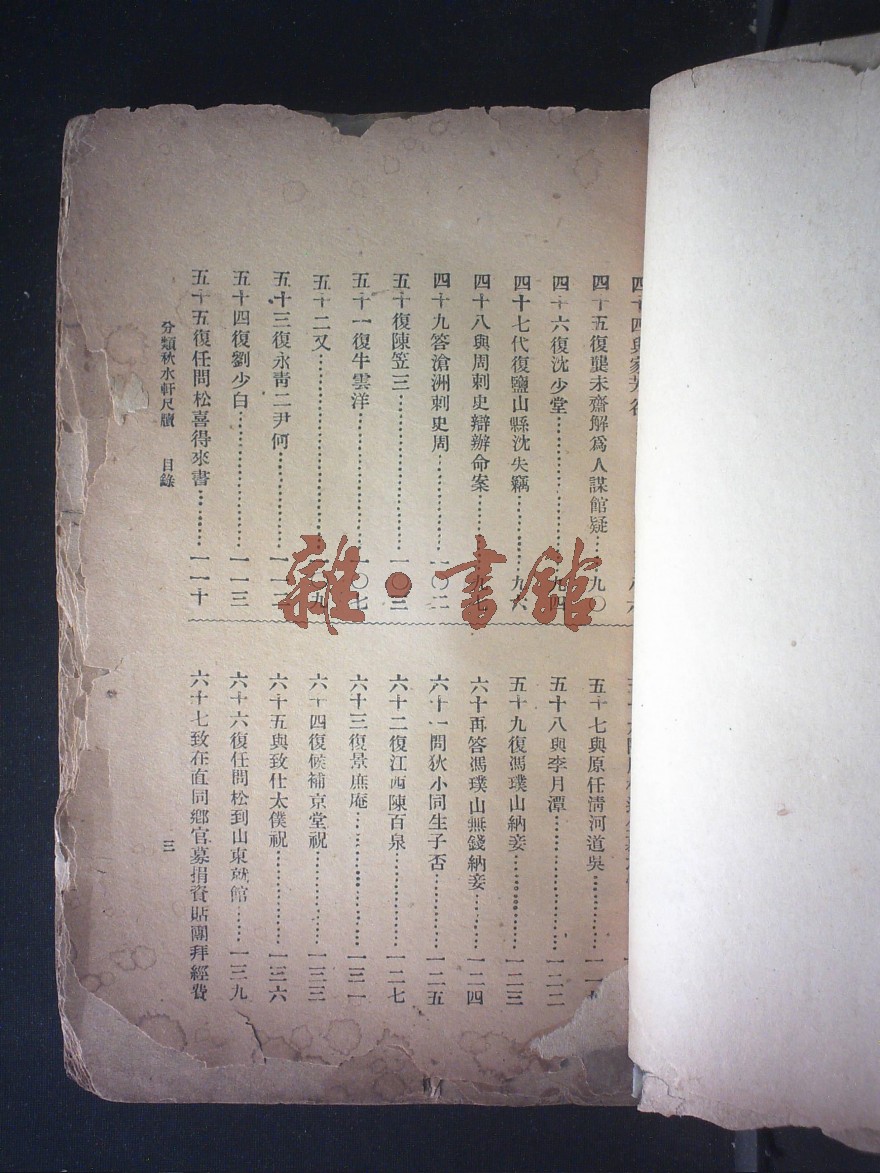 四十五復龔未齋解爲人謀館疑…九〇
四十六復沈少堂…九四
四十七代復鹽山縣沈失竊…九六
四十八與周刺史辯辦命案…九七
四十九答滄洲刺史周…一〇二
五十復陳笠三…一〇三
五十一復牛雲洋…一〇七
五十二又…一〇九
五十三復永靑二尹何…一一
五十四復劉少白…一一三
五十五復任問松喜得來書…一一十
五十七與原任淸河道吳…一一
五十八與李月潭…一二二
五十九復馮璞山納妾…一二三
六十再答馮璞山無錢納妾…一二四
六十一問狄小同生子否…一二五
六十二復江西陳百泉…一二七
六十三復景庶庵…一三一
六十四復候補京堂祝…一三三
六十五與致仕太僕祝…一三六
六十六復任問松到山東就館…一三九
六十七致在直同鄉官募捐資貼團拜經費
分類秋水軒尺牘 目錄
三
雜·書館